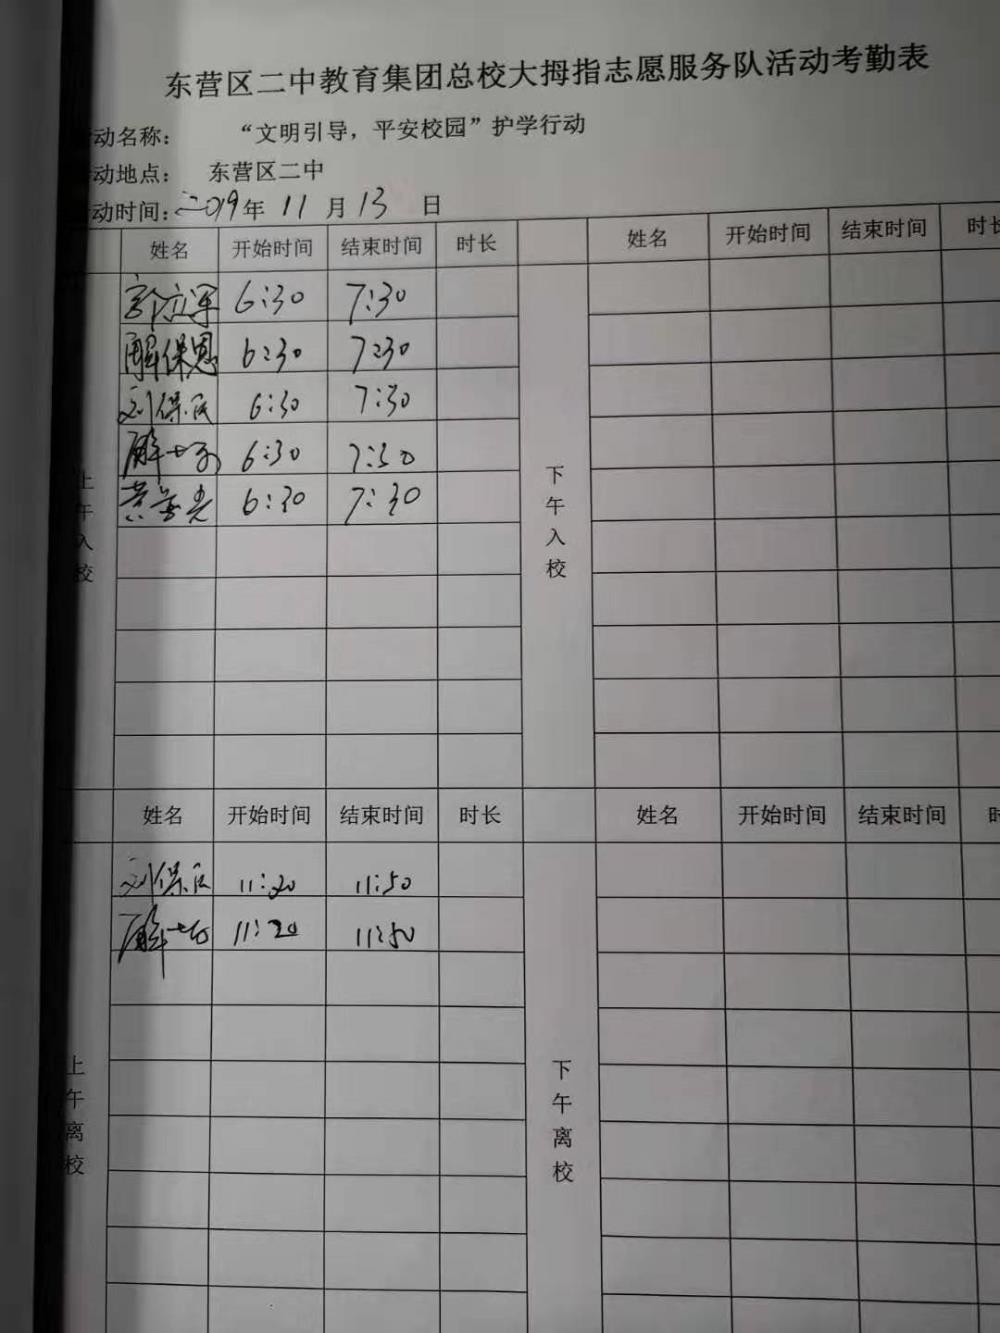 东营区二中教育集团总校大拇指志愿服务队活动考勤表
动名称： “文明引导，平安校园”护学行动
动地点： 东营区二中
动时间：2019年 11 月 13 日
姓名 开始时间 结束时间 时长 姓名 开始时间 结束时间 时长
6:30 7:30
解保恩 6:30 7:30
刘保民 6:30 7:30
解 6:30 7:30
黄 光 6:30 7:30
上午入校
下午入校
姓名 开始时间 结束时间 时长 姓名 开始时间 结束时间 时
刘保民 11:20 11:50
解 11:20 11:50
上午离校
下午离校